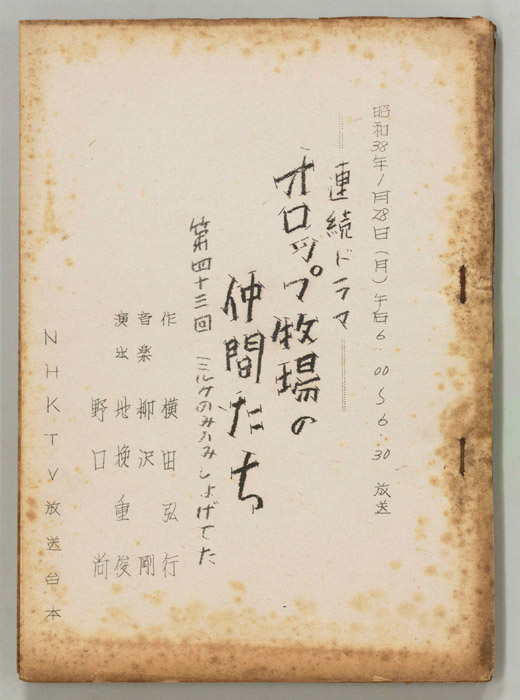 昭和38年1月28日(月)午后6.00〜6.30 放送
連続ドラマ
オロップ牧場の
仲間たち
第四十三回 ミルケのみかみしょげてた
作 横田弘行
音楽 柳沢剛
演出 地挽重俊
野口尚
NHKTV放送台本